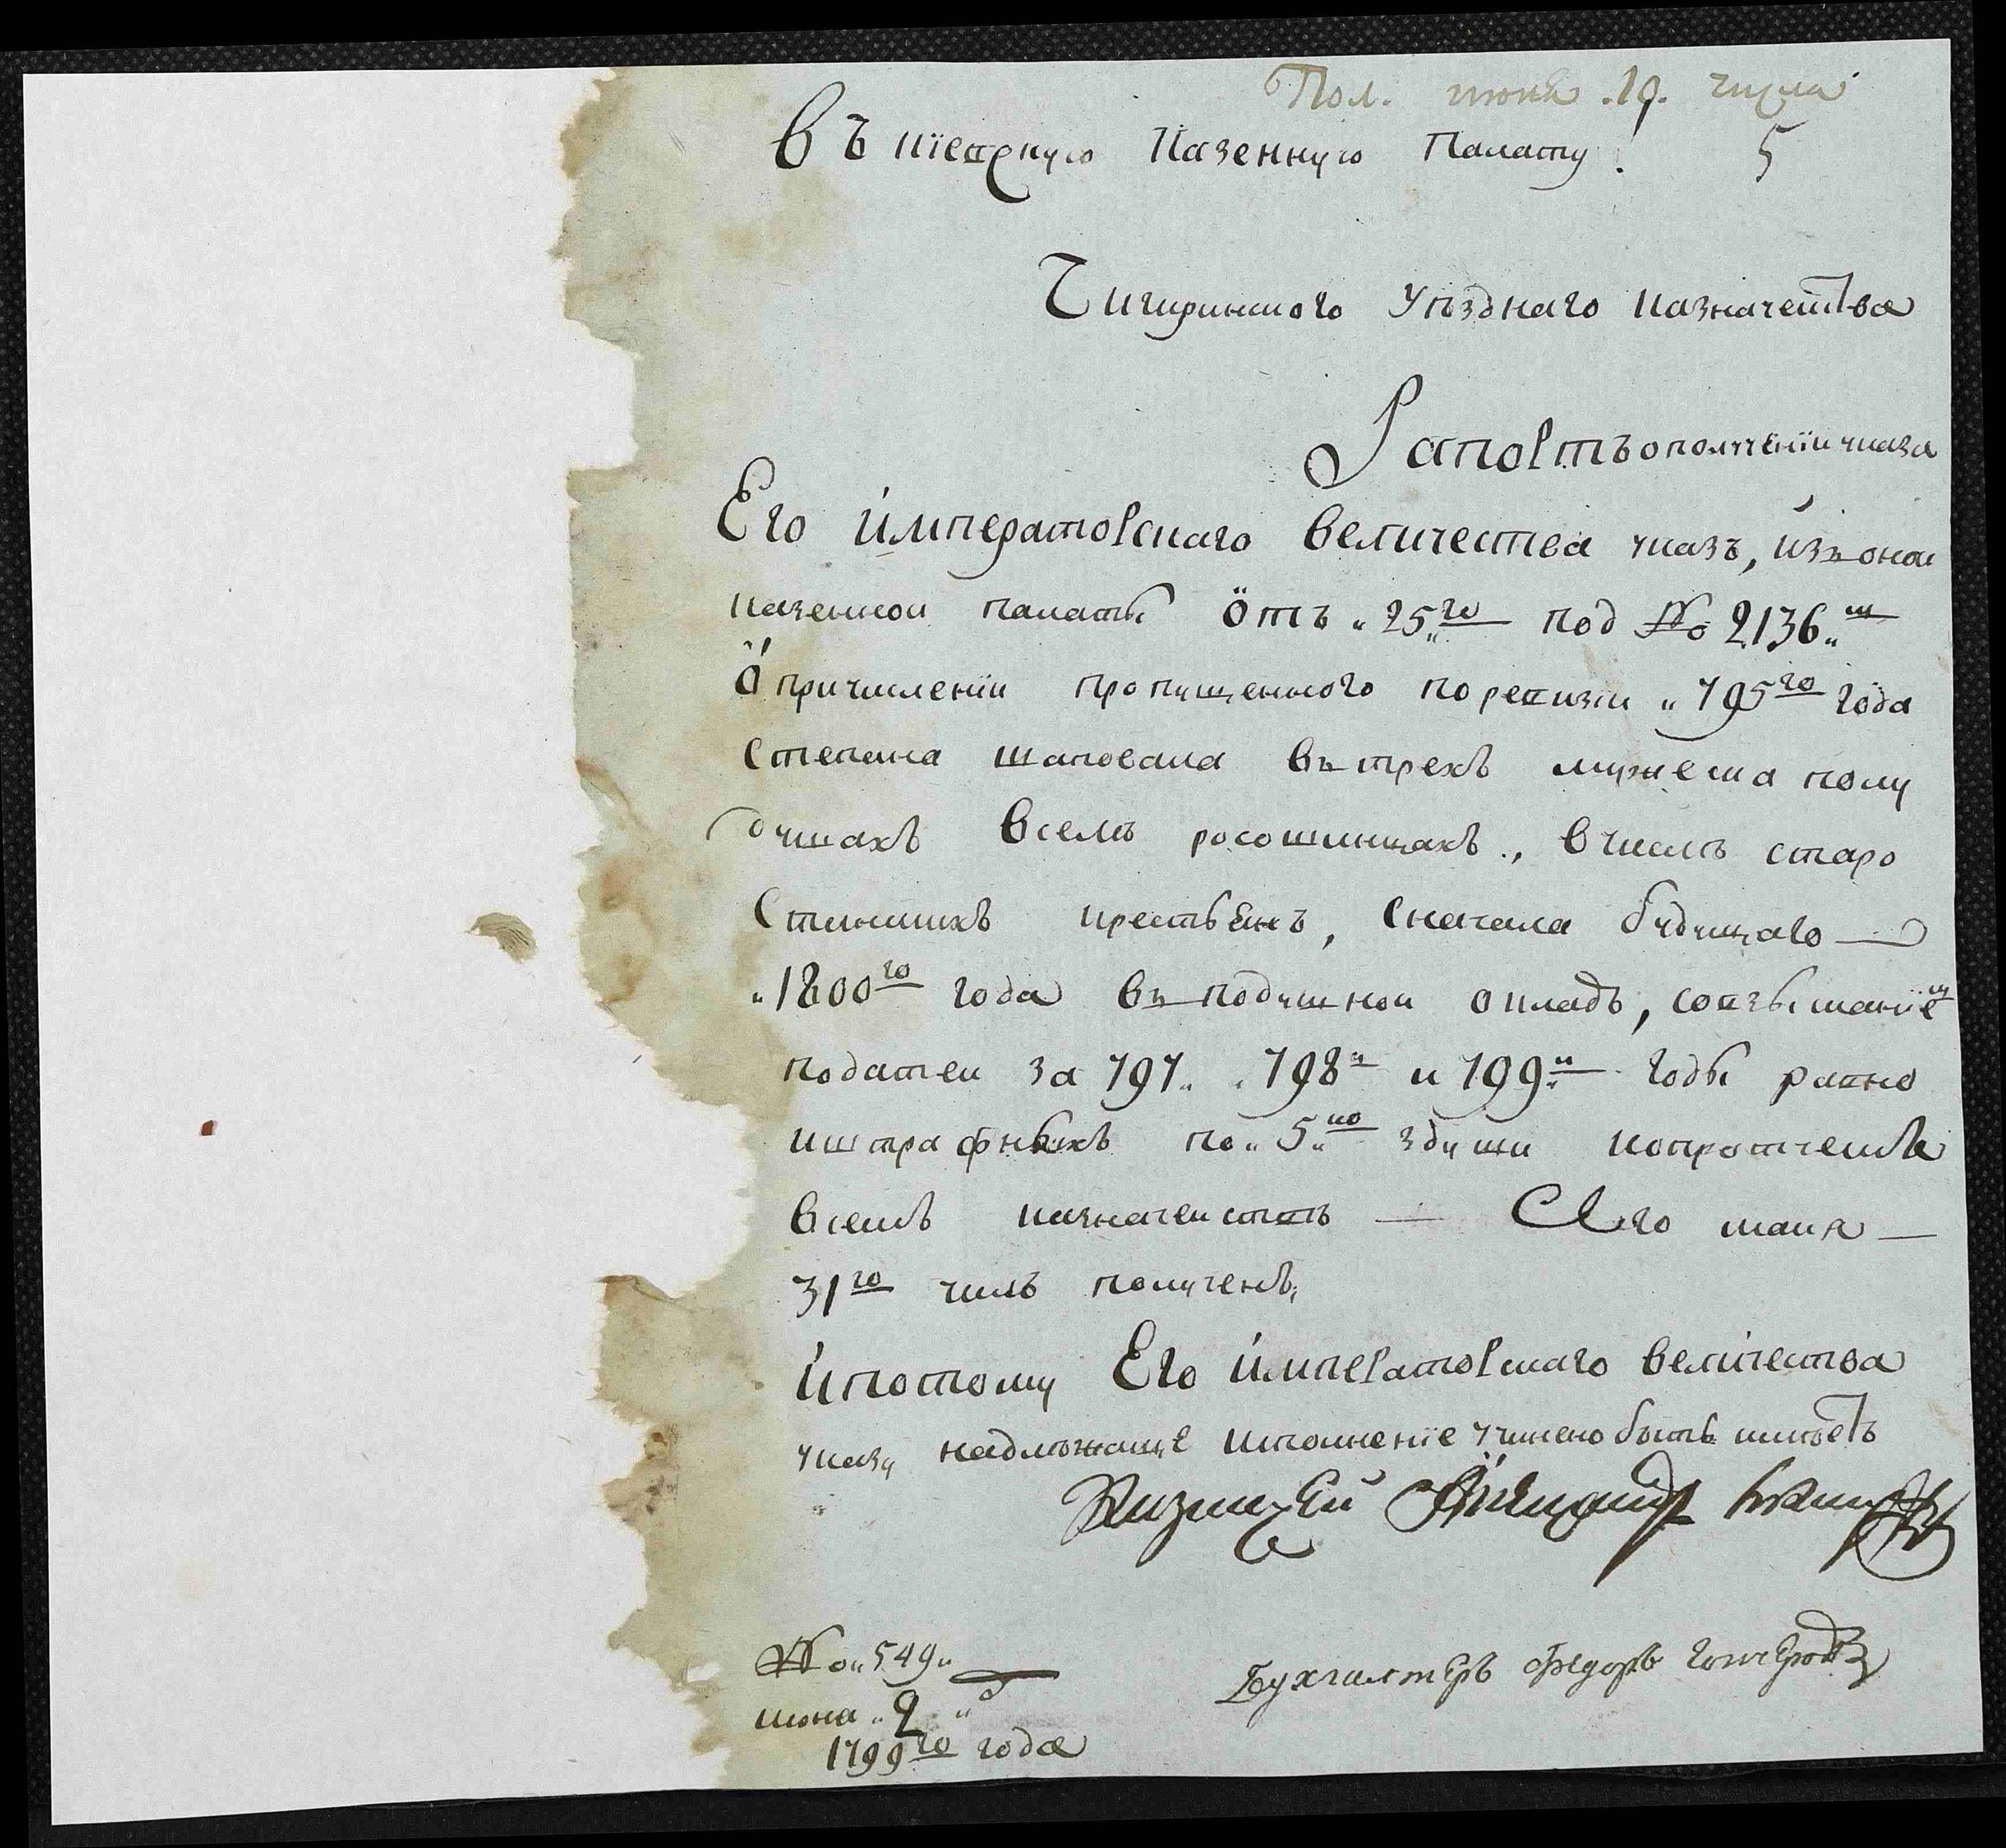 Пол. июня .19. числа
Въ киевскую Казенную Палату! 5
Чигиринского Уезднаго казначейства
Рапортъ о получении указа
Его императорскаго величества указъ, изъ оной
казенной палаты отъ "25"го под № 2136"м
О причислении пропущенного по ревизии "795го года
Степана шаповала въ трехъ мужеска полу
душахъ в селе росошинцахъ., в числе старо
стинскихъ крестьянъ, с начала будущаго
"1800го года въ подушной окладъ, со взысканием
податей за 797" "798й и 799"й годы равно
и штрафныхъ по "5"ко з души
в семъ казначействе — Сего маия —
31го числа полученъ;
и потому Его императорскаго величества
указу надлежащее исполнение учинено быть имеетъ
Казначей
Бухгалтеръ Федоръ
№ "549"
июня "2" д
1799го года